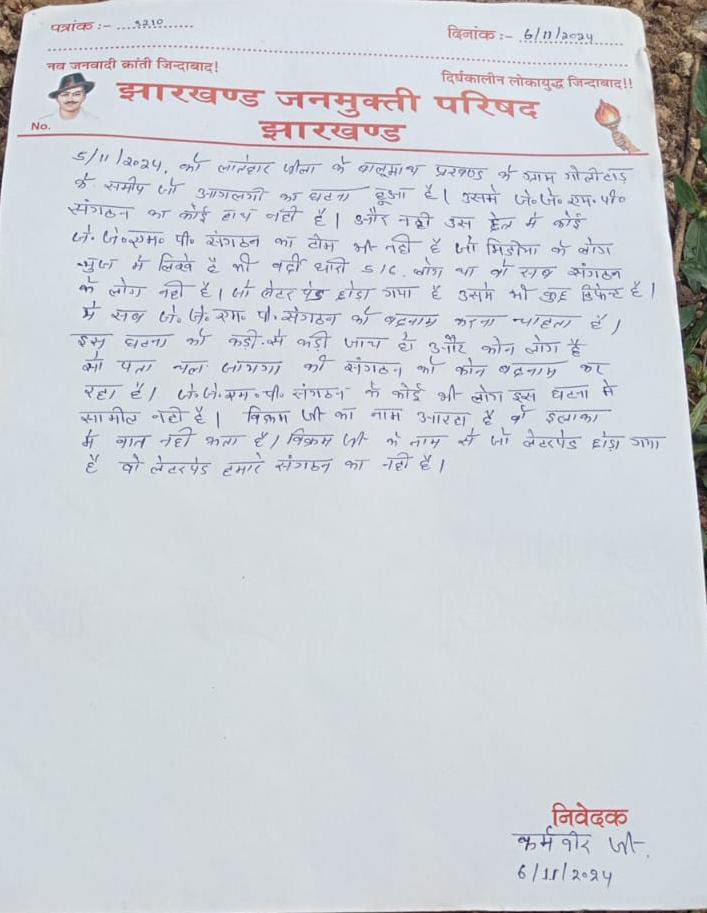 पत्रांक :- ९२१०
दिनांक :- 6/11/2024
नव जनवादी क्रांती जिन्दाबाद!
दिर्घकालीन लोकायुद्ध जिन्दाबाद!!
झारखण्ड जनमुक्ती परिषद
झारखण्ड
No.
5/11/2024, को लातेहार जीला के बालूमाथ प्रखण्ड के ग्राम गोलीटांड़
के समीप जो आगलगी का घटना हूआ है। उसमे जे० जे० एम० पी०
संगठन का कोई हाथ नही है। और नही उस में कोई
जे० जे० एम० पी० संगठन का टीम भी नही है जो मिडीया के लोग
में लिखे है की वर्दी धारी 5/6 लोग था वो सब संगठन
के लोग नही है। जो लेटर पेड छोड़ा गया है उसमे भी कुछ है।
में सब जे० जे० एम० पी० संगठन को बदनाम करना चाहता है।
इस घटना को कड़ी से कड़ी जाच हो और कोन लोग है
सो पता चल जायगा की संगठन को कोन बदनाम कर
रहा है। जे० जे० एम० पी० संगठन के कोई भी लोग इस घटना में
सामील नही है। विक्रम जी का नाम आरहा है वो इलाका
में बात नही है। विक्रम जी के नाम से जो लेटरपेड छोड़ा गया
है वो लेटरपेड हमारे संगठन का नही है।
निवेदक
कर्मवीर जी
6/11/2024